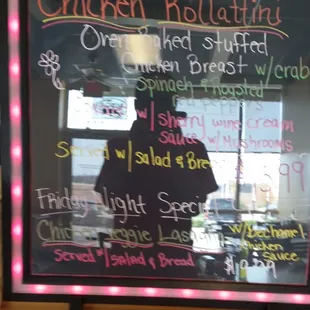 Chicken Rollattini
Oven Baked stuffed
Chicken Breast w/crab
Spinach & Roasted
red peppers
w/sherry wine cream
sauce w/Mushrooms
Served w/salad & Bre
Friday Night Special
Chicken Veggie Lasagna w/Bechamel
chicken
sauce
Served w/salad & Bread